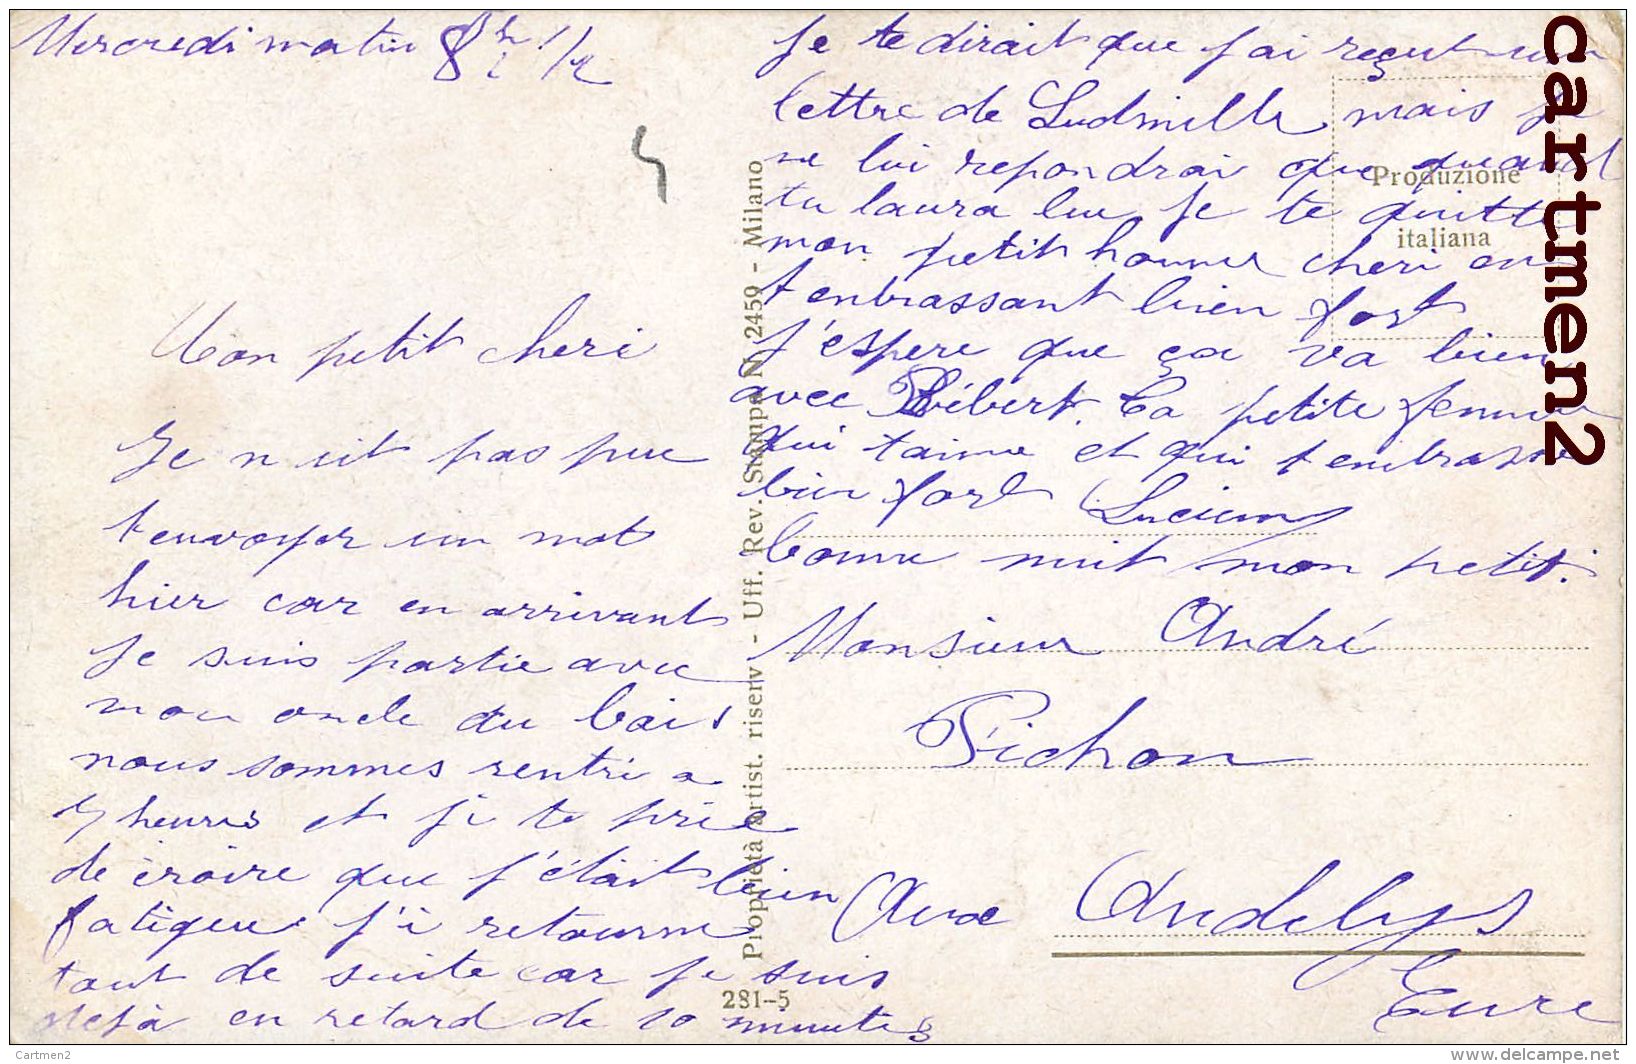 Mercredi matin 8h 1/2
Mon petit cheri
Je n'ait pas pue
t envoyer un mot
hier car en arrivant
Je suis partie avec
mon oncle au bois
nous sommes rentri a
7 heures et je te prie
de croire que j'était bien
fatigue j'i retourne
tout de suite car je suis
deja en retard de 10 minutes
Je te dirait que j'ai reçut une
lettre de Ludmille mais je
ne lui repondrai que quand
tu laura lue Je te quitte
mon petit homme cheri en
t enbrassant bien fort
J'espere que ça va bien
avec Ta petite femme
qui t'aime et qui t embrasse
bien fort Lucienne
bonne nuit mon petit.
Monsieur André
Pichon
Aux Andelys
Eure
Produzione
italiana
Proprietà artist. riserv - Uff. Rev. Stampa N. 2459 - Milano
281-5
cartmen2
Cartmen2
delcampe.net